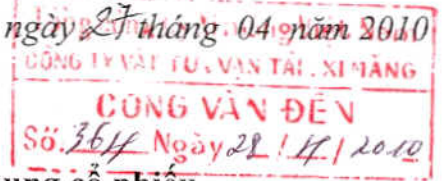 ngày 27 tháng 04 năm 2010
CÔNG TY VẬT TƯ, VẬN TẢI, XI MĂNG
CÔNG VĂN ĐẾN
Số. 364 Ngày 28 / 4 / 2010
ung cổ phiếu